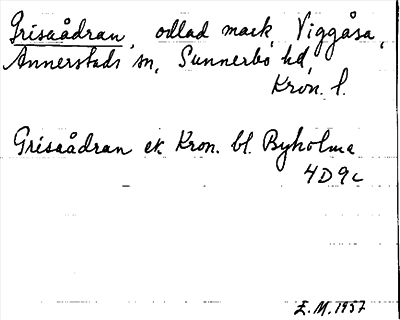 Grisaådran, odlad mark, Viggåsa,
Annerstads sn, Sunnerbo hd,
Kron. l.
Grisaådran ek Kron. bl. Byholma
4D9c
E.M. 1957